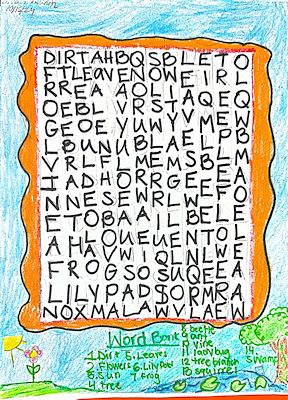 DIRTAHBQSBLETO
FTLEAVENOWEIRL
RREAAOLI
OEBLVRSTAQEQ
GEOEYUWYVMEW
LBUNUBLAELPB
VRLFLMEMSBLM
IADHORRGEEFA
NNESEWRLWEFO
ETOBAAILBELE
AHLOUEUENTOL
FROGSOSUQEEA
LILYPAD$ORMRA
NOXMALAWVLAEW
Word Bank
1. Dirt 5. Leaves
2. Flowers 6. Lilypad
3. Sun 7. Frog
4. tree
8 beetle
9 ant
10 vine
11 lady bug
12 tree branch
13 squirrel
14 Swamp